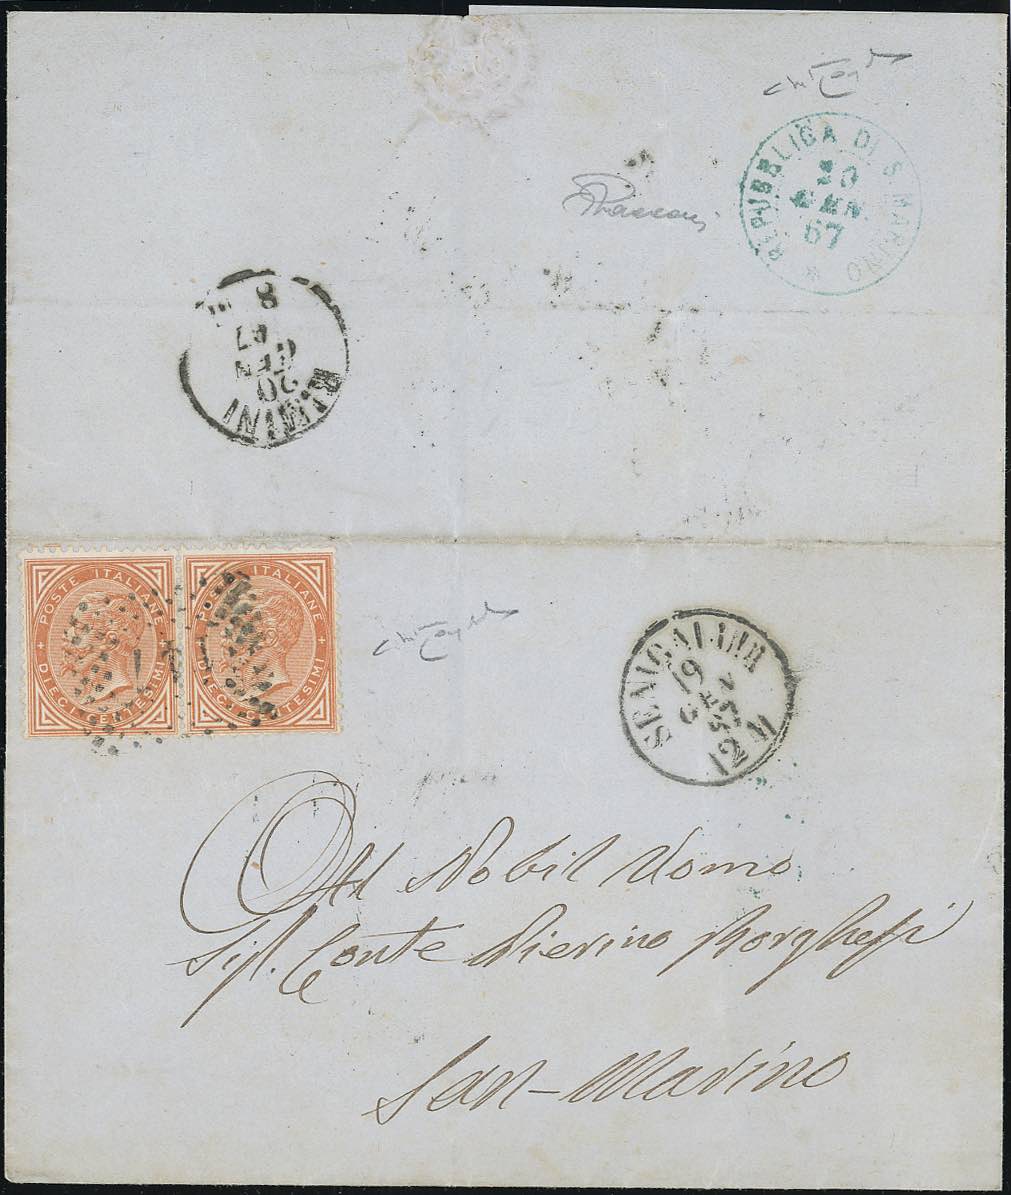 REPUBBLICA DI S. MARINO
20
GEN
67
8
67
GEN
20
RIMINI
POSTE ITALIANE
DIECI CENTESIMI
POSTE ITALIANE
DIECI CENTESIMI
SENAGALLIA
19
12 M
Al Nobil Uomo
Sig. Conte Pierino Borghesi
San-Marino